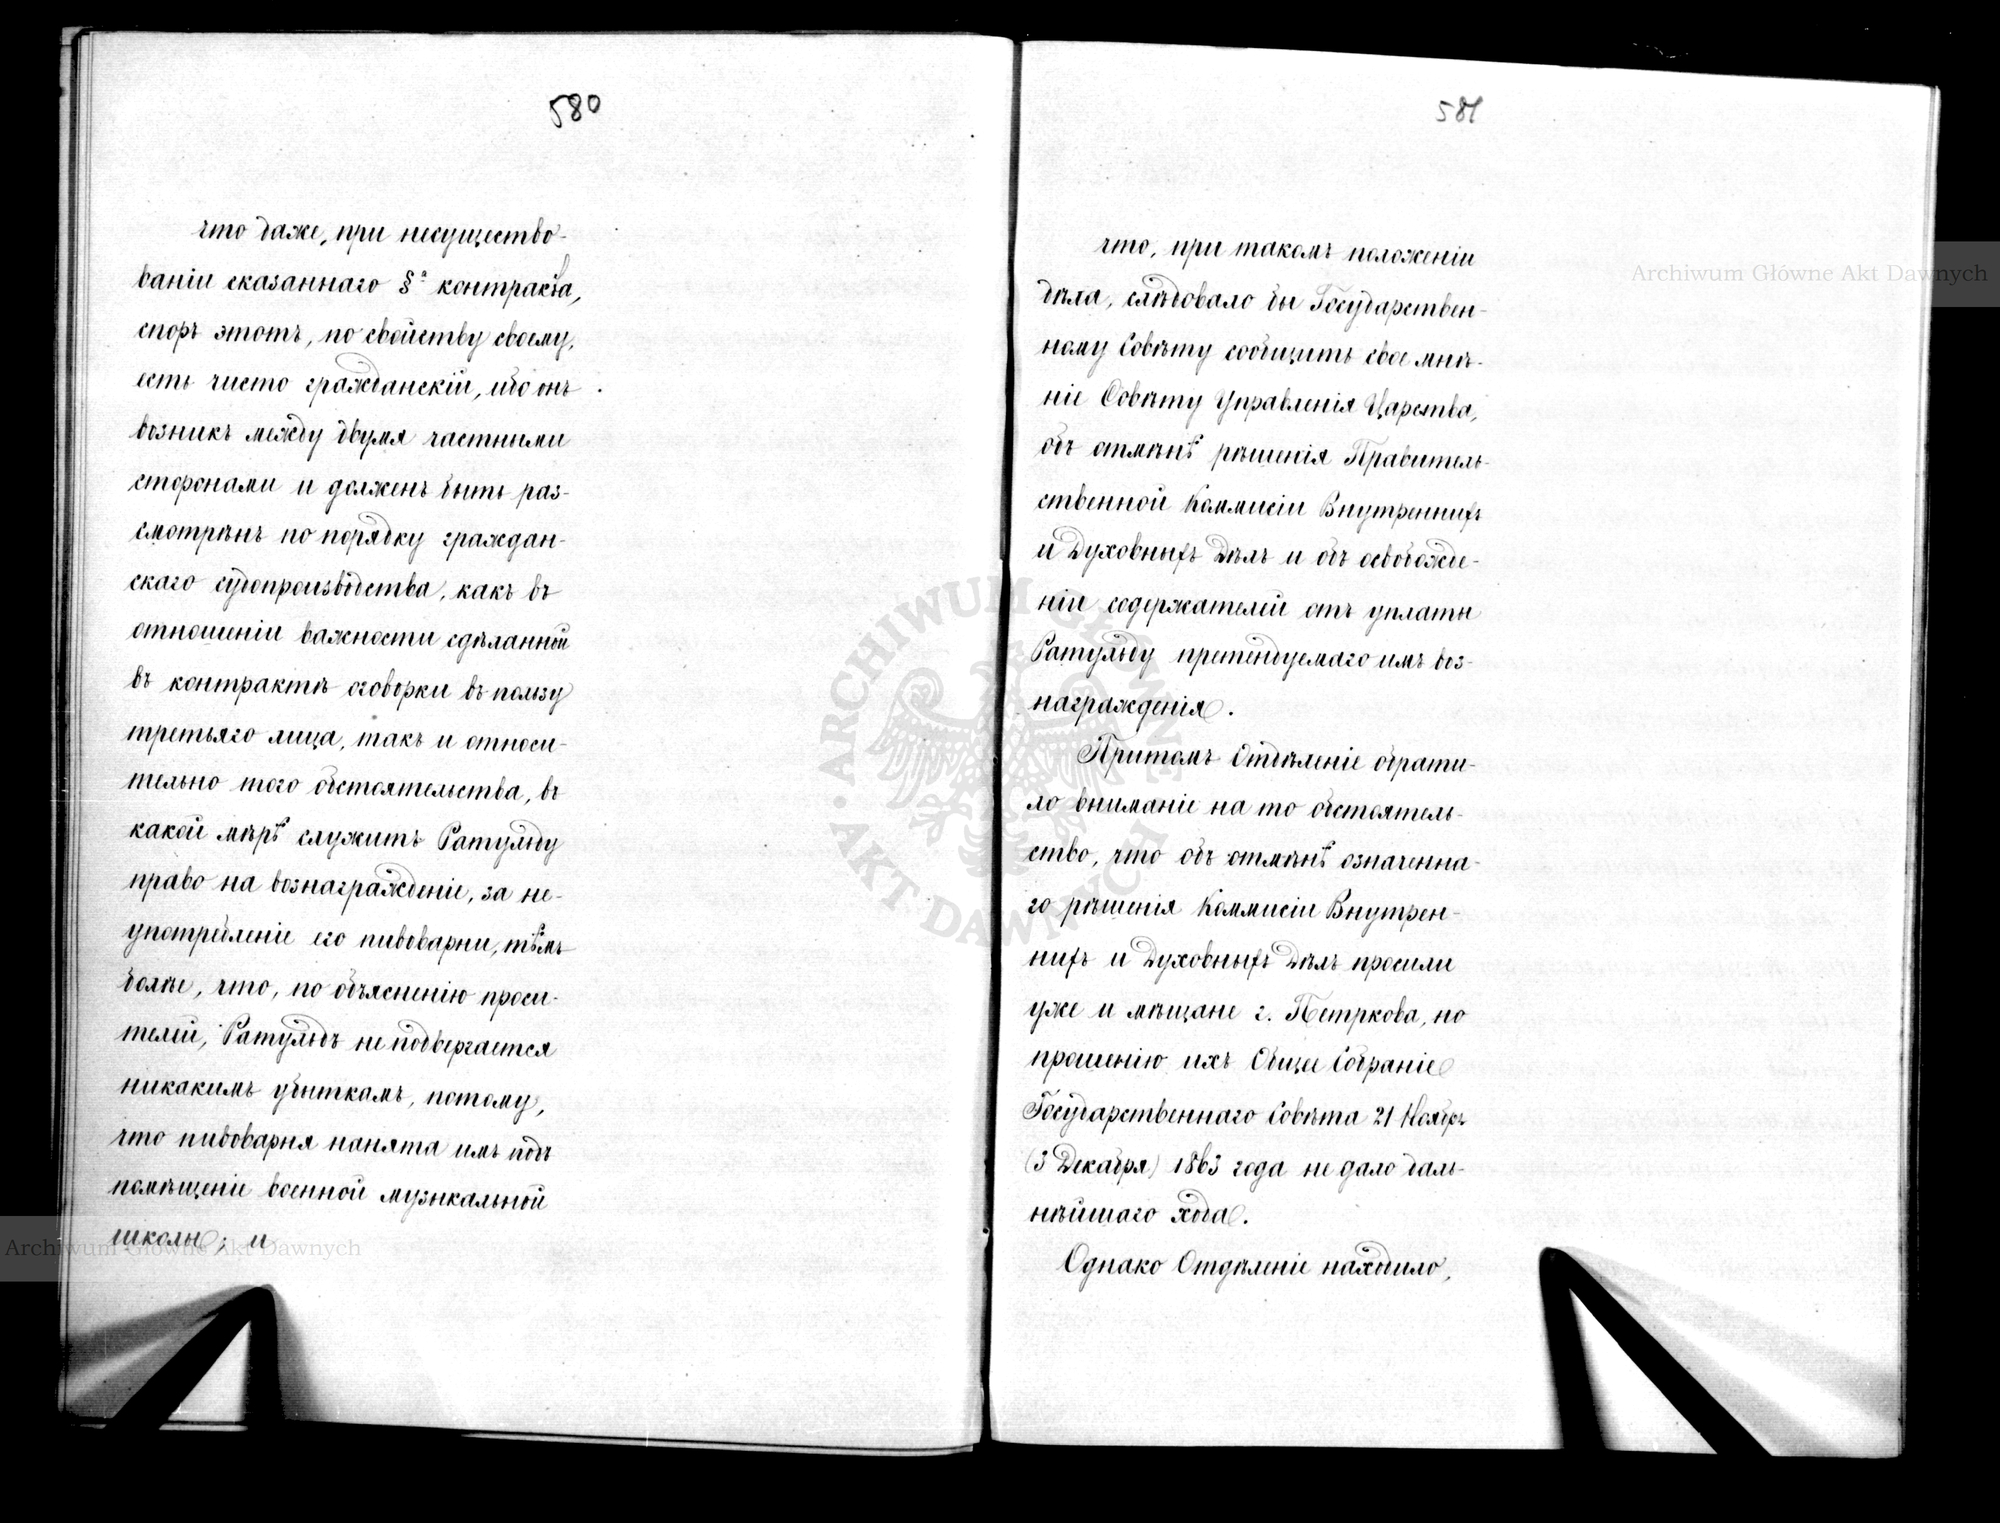 580
что даже, при несущество-
ваніи сказаннаго §а контракта,
споръ этотъ, по свойству своему,
есть чисто гражданскій, ибо онъ
возникъ между двумя частными
сторонами и долженъ быть раз-
смотрѣнъ по порядку граждан-
скаго судопроизводства, какъ въ
отношеніи важности сдѣланной
въ контрактѣ оговорки въ пользу
третьяго лица, такъ и относи-
тельно того обстоятельства, въ
какой мѣрѣ служитъ Ратульду
право на вознагражденіе, за не-
употребленіе его пивоварни, тѣмъ
болѣе, что, по объясненію проси-
телей, Ратульдъ не подвергается
никакимъ убыткамъ, потому,
что пивоварня нанята имъ подъ
помѣщеніе военной музыкальной
школы; и
581
что, при такомъ положеніи
дѣла, слѣдовало бы Государствен-
ному Совѣту сообщить свое мнѣ-
ніе Совѣту Управленія Царства,
объ отмѣнѣ рѣшенія Правитель-
ственной Коммисіи Внутреннихъ
и Духовныхъ Дѣлъ и объ освобожде-
ніи содержателей отъ уплаты
Ратульду претендуемаго имъ воз-
награжденія.
Притомъ Отдѣленіе обрати-
ло вниманіе на то обстоятель-
ство, что объ отмѣнѣ означенна-
го рѣшенія Коммисіи Внутрен-
нихъ и Духовныхъ Дѣлъ просили
уже и мѣщане г. Петркова, но
прошенію ихъ Общее Собраніе
Государственнаго Совѣта 21 Ноября
(3 Декабря) 1863 года не дало даль-
нѣйшаго хода.
Однако Отдѣленіе находило,
Archiwum Główne Akt Dawnych
Archiwum Główne Akt Dawnych
ARCHIWUM GŁÓWNE AKT DAWNYCH